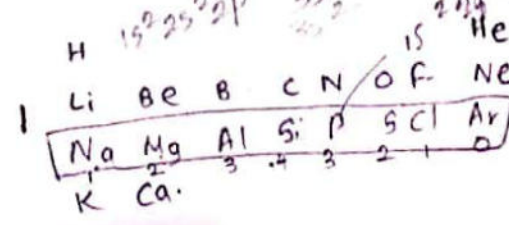 H 1s² 2s² 2p He
1s
Li Be B C N O F Ne
1
Na Mg Al Si P S Cl Ar
1 2 3 4 3 2 1 0
K Ca.